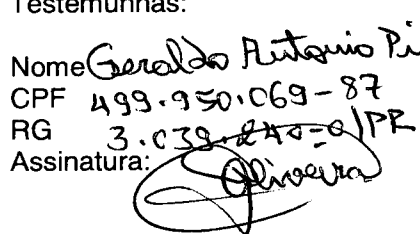 Testemunhas:
Nome Geraldo Antonio Pi
CPF 499.950.069-87
RG 3.039.240-0/PR
Assinatura: Oliveira